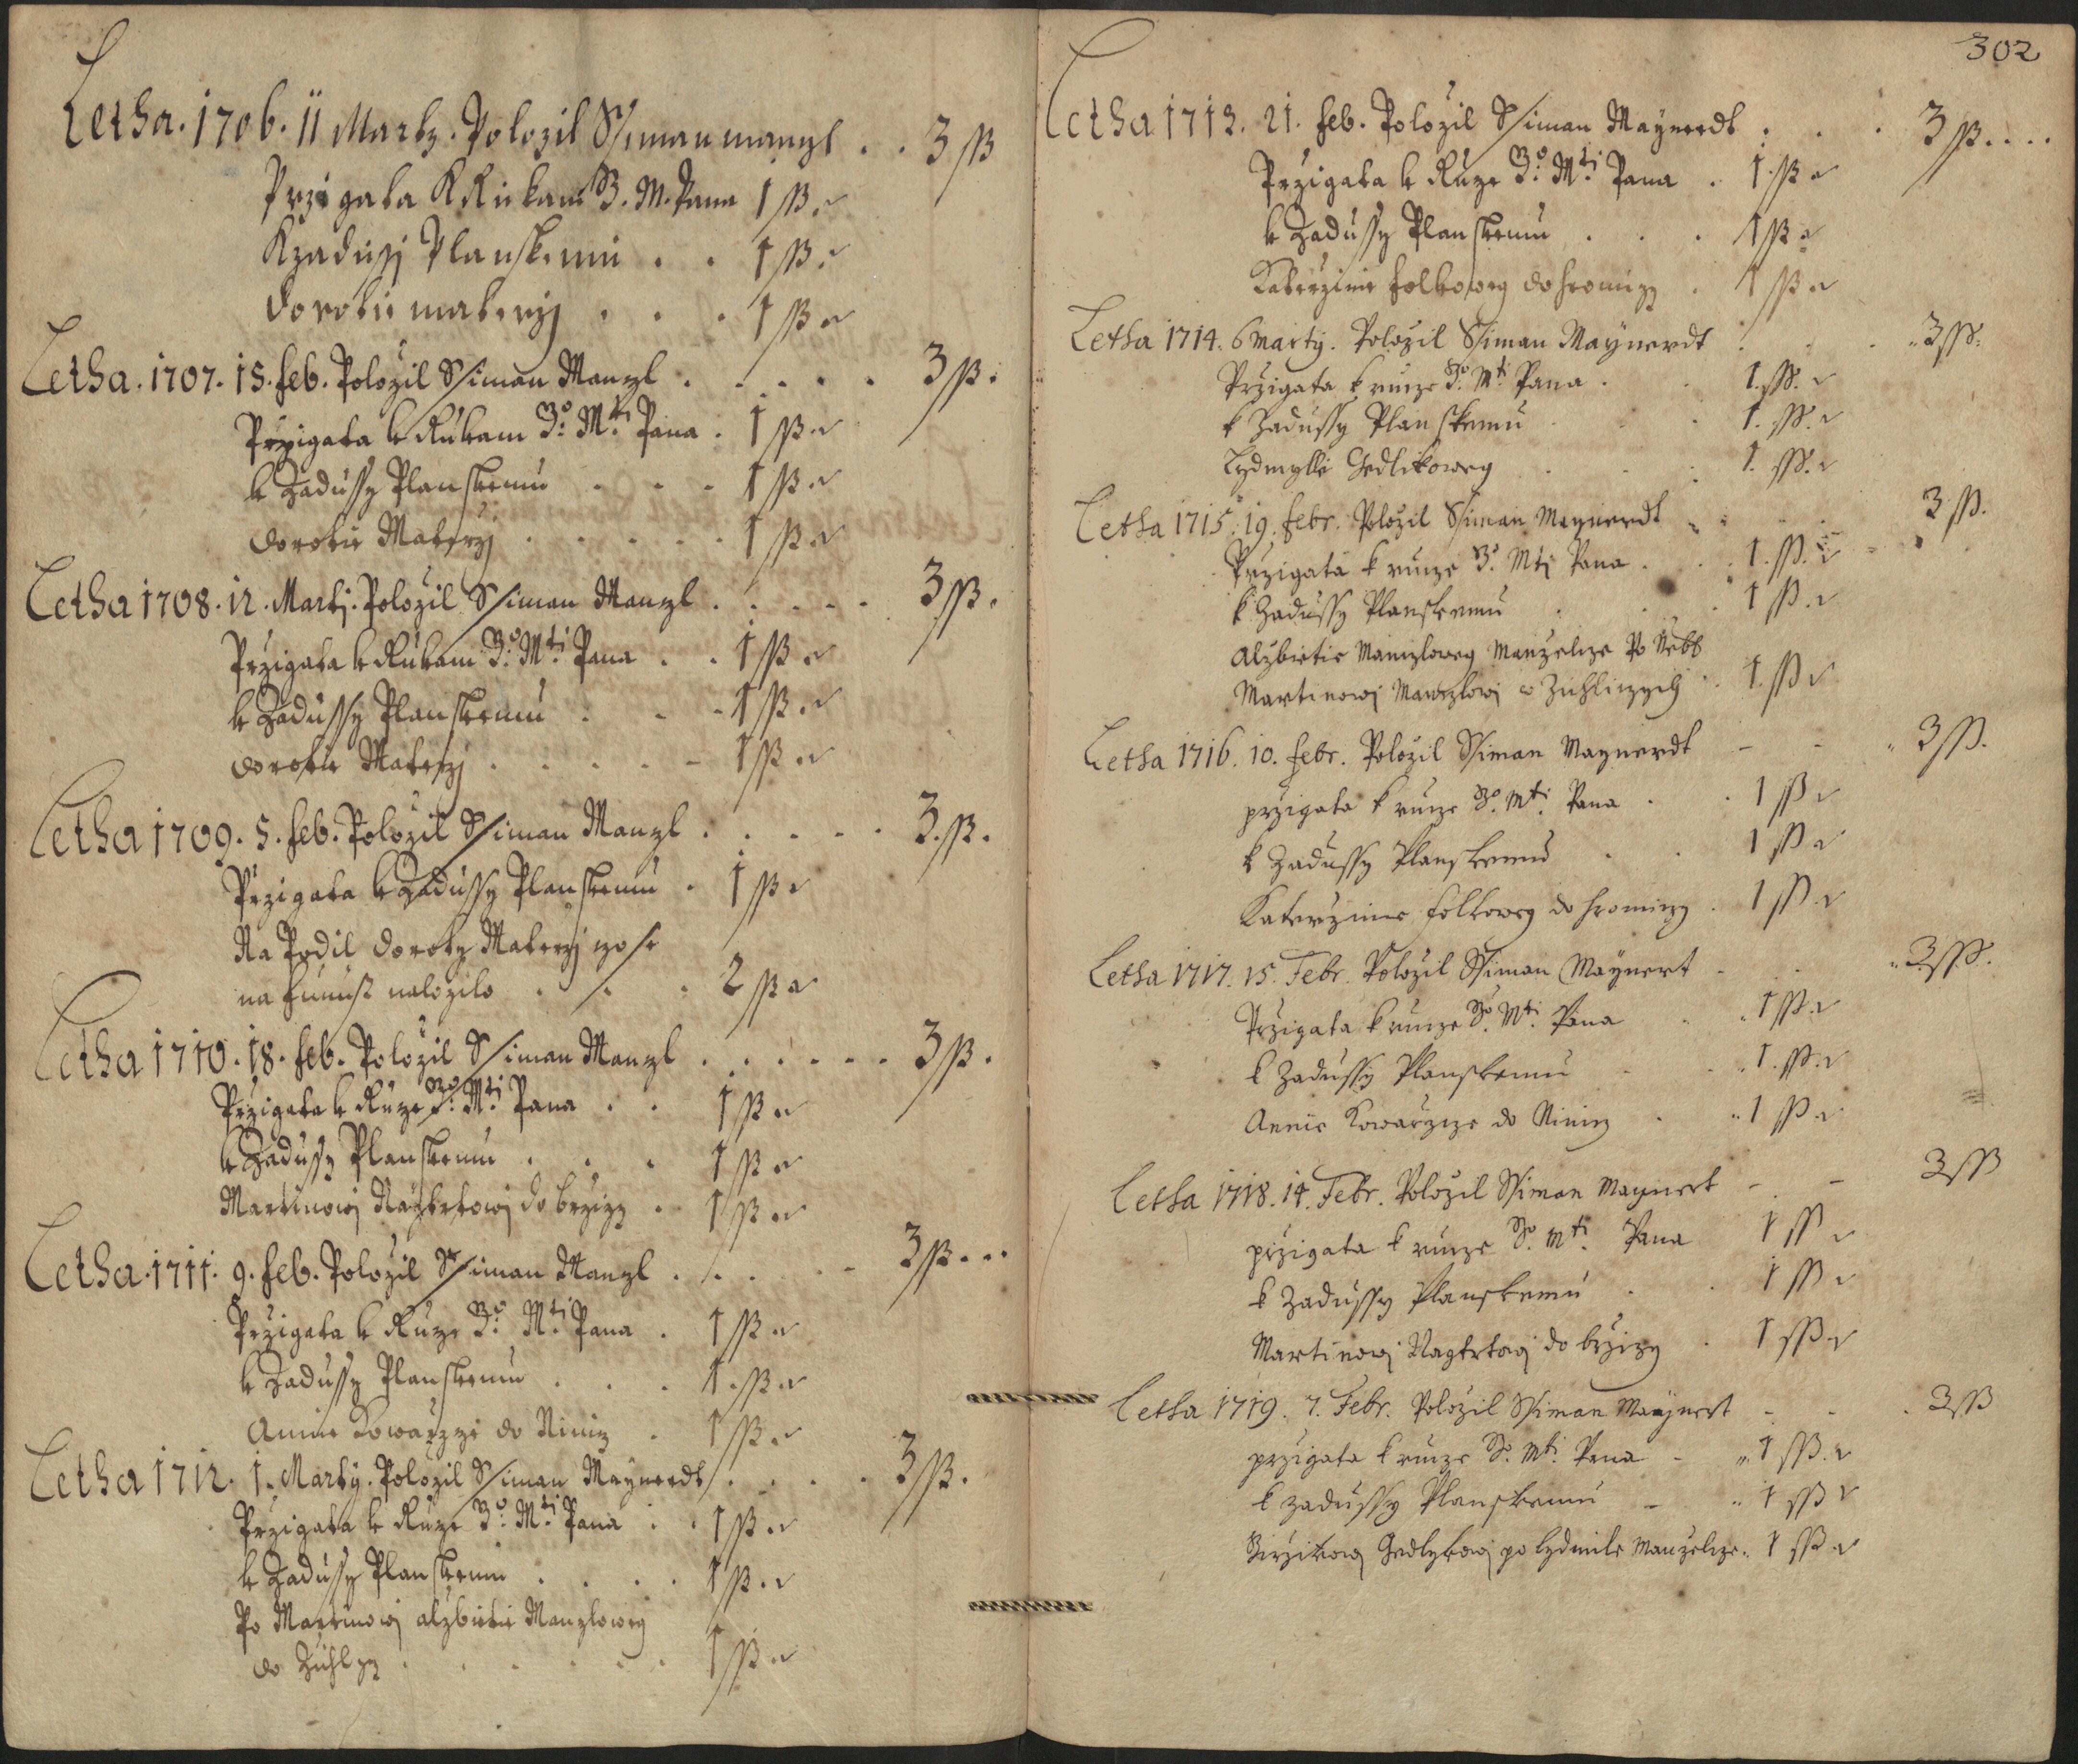 Letha. 1706. 11 Marty. Polozil Ssiman manzl . . 3 ß
Przigata K Rukam J. M. Pana 1 ß.
Kzadussj Planskemu . . 1 ß.
dorotie materzj . . . 1 ß
Letha. 1707. 15. feb. Polozil Ssiman Manzl . . . . . 3 ß.
Przigata k Rukam Jo: Mti: Pana . 1 ß
k Zadussy Planskemu . . . 1 ß
dorotie Materzj . . . . . 1 ß
Letha 1708. 12. Martj. Polozil Ssiman Manzl . . . . . 3 ß.
Przigata k Rukam Jo: Mti: Pana . . 1 ß
k Zadussy Planskemu . . . 1 ß
dorotie Materzj . . . . . 1 ß
Letha 1709. 5. feb. Polozil Ssiman Manzl . . . . . 3. ß.
Przigata k Zadussy Planskemu . 1 ß
Na Podil doroty Materzj czo se
na funust nalozilo . . . 2 ß
Letha 1710. 18. feb. Polozil Ssiman Manzl . . . . . . 3 ß.
Przigata k Ruze Jo: Mti: Pana . . 1 ß
k Zadussy Planskemu . . . 1 ß
Martinowj do brzizy . 1 ß
Letha. 1711. 9. feb. Polozil Ssiman Manzl . . . . . 3 ß . . .
Przigata k Ruze Jo: Mti: Pana . 1 ß
k Zadussy Planskemu . . . 1. ß
Annie Kowarzze do Nimiz . 1 ß
Letha 1712. 1. Marty. Polozil Ssiman Maynerdt . . . . 3 ß.
Przigata k Ruze Jo: Mti: Pana . . 1 ß
k Zadussy Planskemu . . . . 1 ß
Po Martinowj alzbietie Manzlowey
do . . . . . 1 ß
302
Letha 1713. 21. feb. Polozil Ssiman Maynerdt . . . 3 ß. . . .
Przigata k Ruze Jo: Mti: Pana . 1. ß
k Zadussy Planskemu . . . 1 ß
Katerzinie folkowey do hromizy . 1 ß
Letha 1714. 6 Marty. Polozil Ssiman Maynerdt . . . 3 ß.
Przigata k ruuze Jo: Mti: Pana . . 1. ß.
k Zadussy Planskemu . . 1. ß.
Lydmylle Gedlikowey . . . 1. ß.
Letha 1715. 19. febr. Polozil Ssiman Maynerdt . . . . 3 ß.
Przigata k ruuze Jo. Mti Pana . . . 1. ß.
k Zadussy Planskemu . . . 1 ß.
Alzbietie Manzlowey Manzelcze Po Nebb
Martinowj Manczlowj w . 1. ß
Letha 1716. 10. febr. Polozil Ssiman Maynerdt - - 3 ß.
przigata k ruuze Jo. Mti: Pana . . 1 ß
k Zadussy Planskemu . . 1 ß
Katerzinie folkowey do hromizy . 1 ß
Letha 1717. 15. Febr. Polozil Ssiman Maynert - . 3 ß.
Przigata k ruuze Jo. Mti: Pana . . 1 ß.
k Zadussy Planskemu . . 1. ß.
Annie Kowarzize do Nimiz . 1 ß
Letha 1718. 14. Febr. Polozil Ssiman Maynert - - 3 ß
przigata k ruuze Jo. Mti: Pana 1 ß
k Zadussy Planskemu . . 1 ß
Martinowj do brzizy . 1 ß
Letha 1719. 7. Febr. Polozil Ssiman Maynert - - . 3 ß
przigata k ruuze Jo. Mti: Pana - 1 ß.
k zadussy Planskemu - 1 ß
Girzikowj Gedlykowj po lydmile Manzelcze. 1 ß